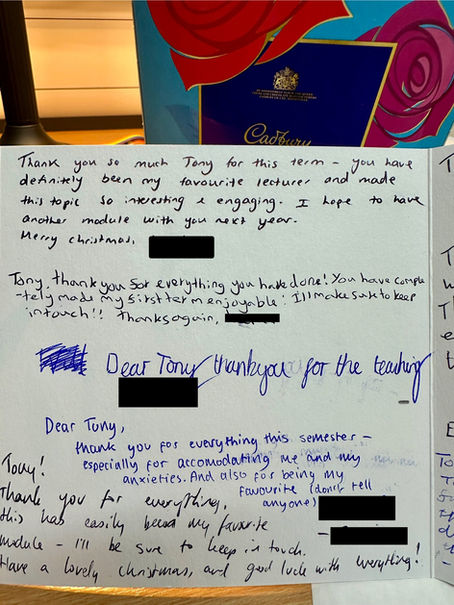 Cadbury
Thank you so much Tony for this term - you have
definitely been my favourite lecturer and made
this topic so interesting & engaging. I hope to have
another module with you next year.
Merry christmas,
Tony, thankyou for everything you have done! You have comple
-tely made my first term enjoyable! I'll make sure to keep
in touch!! Thanks again,
Dear Tony thankyou for the teaching
Dear Tony,
thank you for everything this semester -
especially for accomodating me and my
anxieties. And also for being my
favourite (don't tell
anyone)
-
Tony!
Thank you for everything,
this has easily been my favourite
module - I'll be sure to keep in touch.
Have a lovely christmas, and good luck with everything!